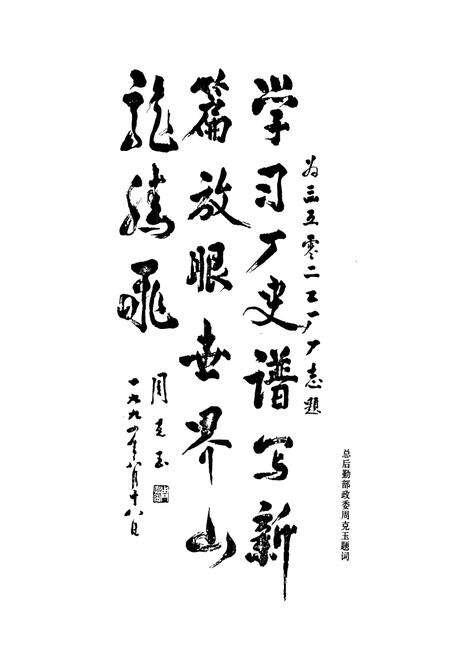 总后勤部政委周克玉题词
为三五零二工厂厂志题
学习厂史谱写新
篇放眼世界山
龍腾飛
周克玉
一九九〇年八月十八日